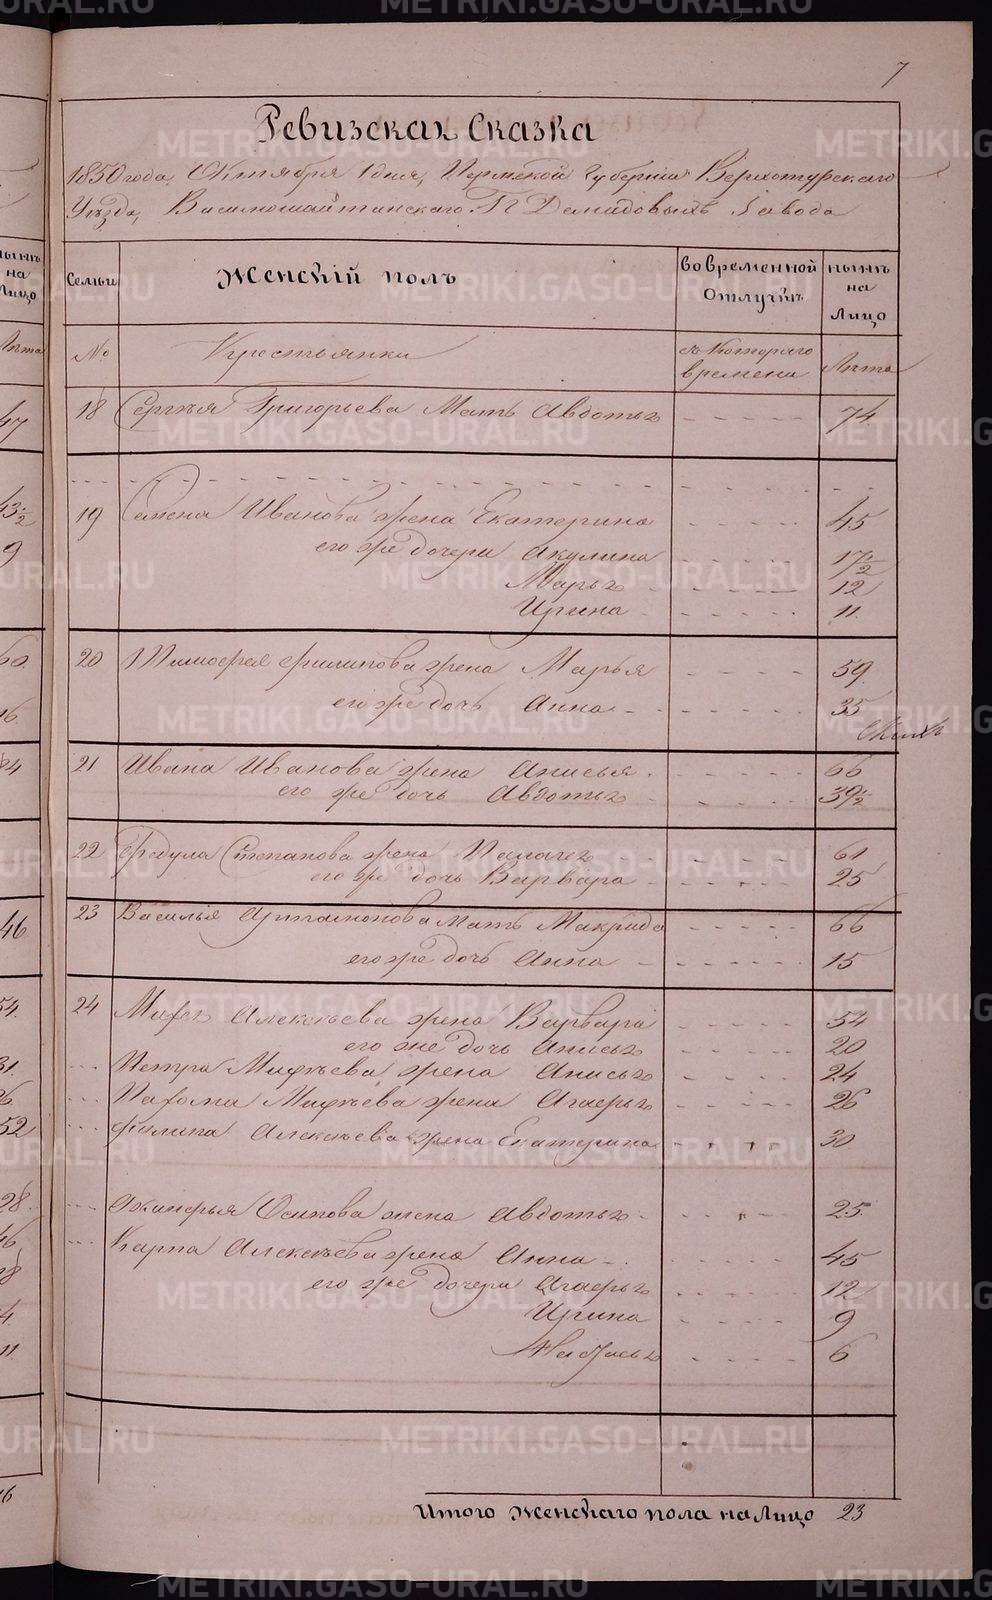 7
Ревизская Сказка
1850 года, Октября 1 дня, Пермской Губернии Верхотурскаго
Уѣзда, Висимошайтанскаго Г.П Демидовыхъ Завода
Семьи Женскій полъ во временной отлучкѣ нынѣ на Лицо
№ Крестьянки съ котораго времени Лѣта
18 Сергѣя Григорьева Мать Авдотья - - - - 74.
19 Семена Иванова жена Екатерина - - - - 45
его же дочери Акулина - - - - 17 1/2
Марья - - - - 12
Ирина - - - - 11.
20 Тимофея Филипова жена Марья - - - - 59.
его же дочь Анна - - - - 35
21 Ивана Иванова жена Анисья - - - - 66
его же дочь Авдотья - - - - 39 1/2
22 Федула Степанова жена Палагея - - - - 61
его же дочь Варвара - - - - 25
23 Василья Артамонова Мать Макрида - - - - 66
его же дочь Анна - - - - 15
24 Мафея Алексѣева жена Варвара - - - - 54
его же дочь Анисья - - - - 20
Петра Мафѣева жена Анисья - - - - 24
Пахома Мафѣева жена Агафья - - - - 26
Филипа Алексѣева жена Екатерина - - - - 30
Осипова жена Авдотья - - - - 25.
Карпа Алексѣева жена Анна - - - - 45
его же дочери Агафья - - - - 12
Ирина - - - - 9
Настасья - - - - 6
Итого Женскаго пола на Лицо 23
METRIKI.GASO-URAL.RU